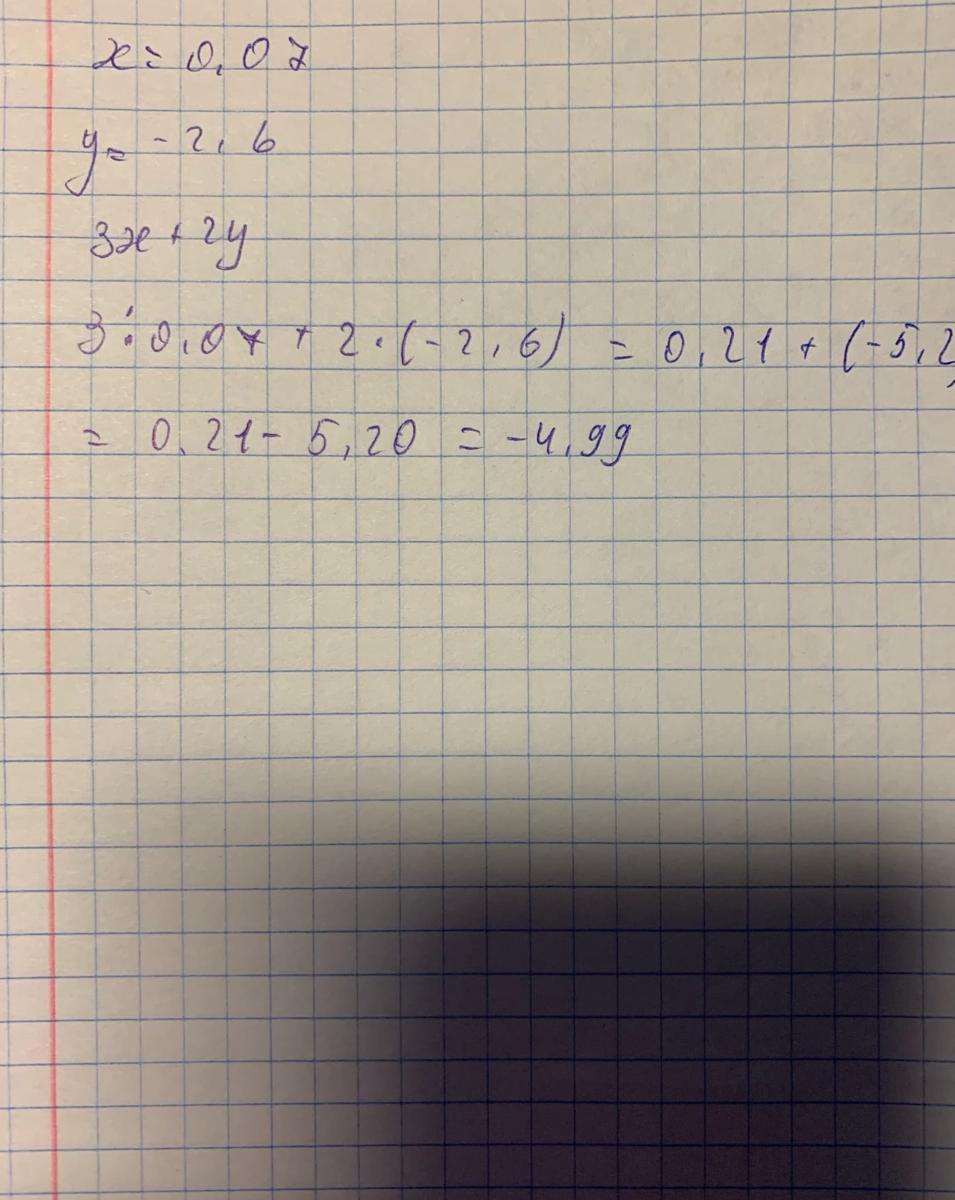 x = 0,07
y = -2,6
3x + 2y
3 · 0,07 + 2 · (-2,6) = 0,21 + (-5,2)
= 0,21 - 5,20 = -4,99